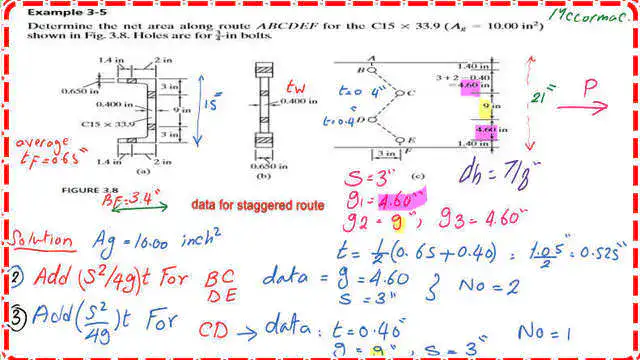 Example 3-5
Mccormac.
Determine the net area along route ABCDEF for the C15 × 33.9 (Ag = 10.00 in²)
shown in Fig. 3.8. Holes are for ¾-in bolts.
1.4 in
2 in
0.650 in
3 in
0.400 in
9 in
C15 × 33.9
3 in
1.4 in
2 in
(a)
15"
average
tF=0.65"
tw
0.400 in
0.650 in
(b)
A
B
C
D
E
F
t=0.4"
t=0.4"
1.40 in
3 + 2 − 0.40
= 4.60 in
9 in
4.60 in
1.40 in
3 in
(c)
21"
P
FIGURE 3.8
BF=3.4"
data for staggered route
S=3"
g1=4.60"
g2=9", g3=4.60"
dh=7/8"
Solution Ag=10.00 inch²
t=1/2(0.65+0.40)=1.05"/2=0.525"
② Add (S²/4g)t For BC
DE
data=g=4.60
S=3"
} No=2
③ Add(S²/4g)t For CD → data: t=0.40" No=1
g=9", S=3"